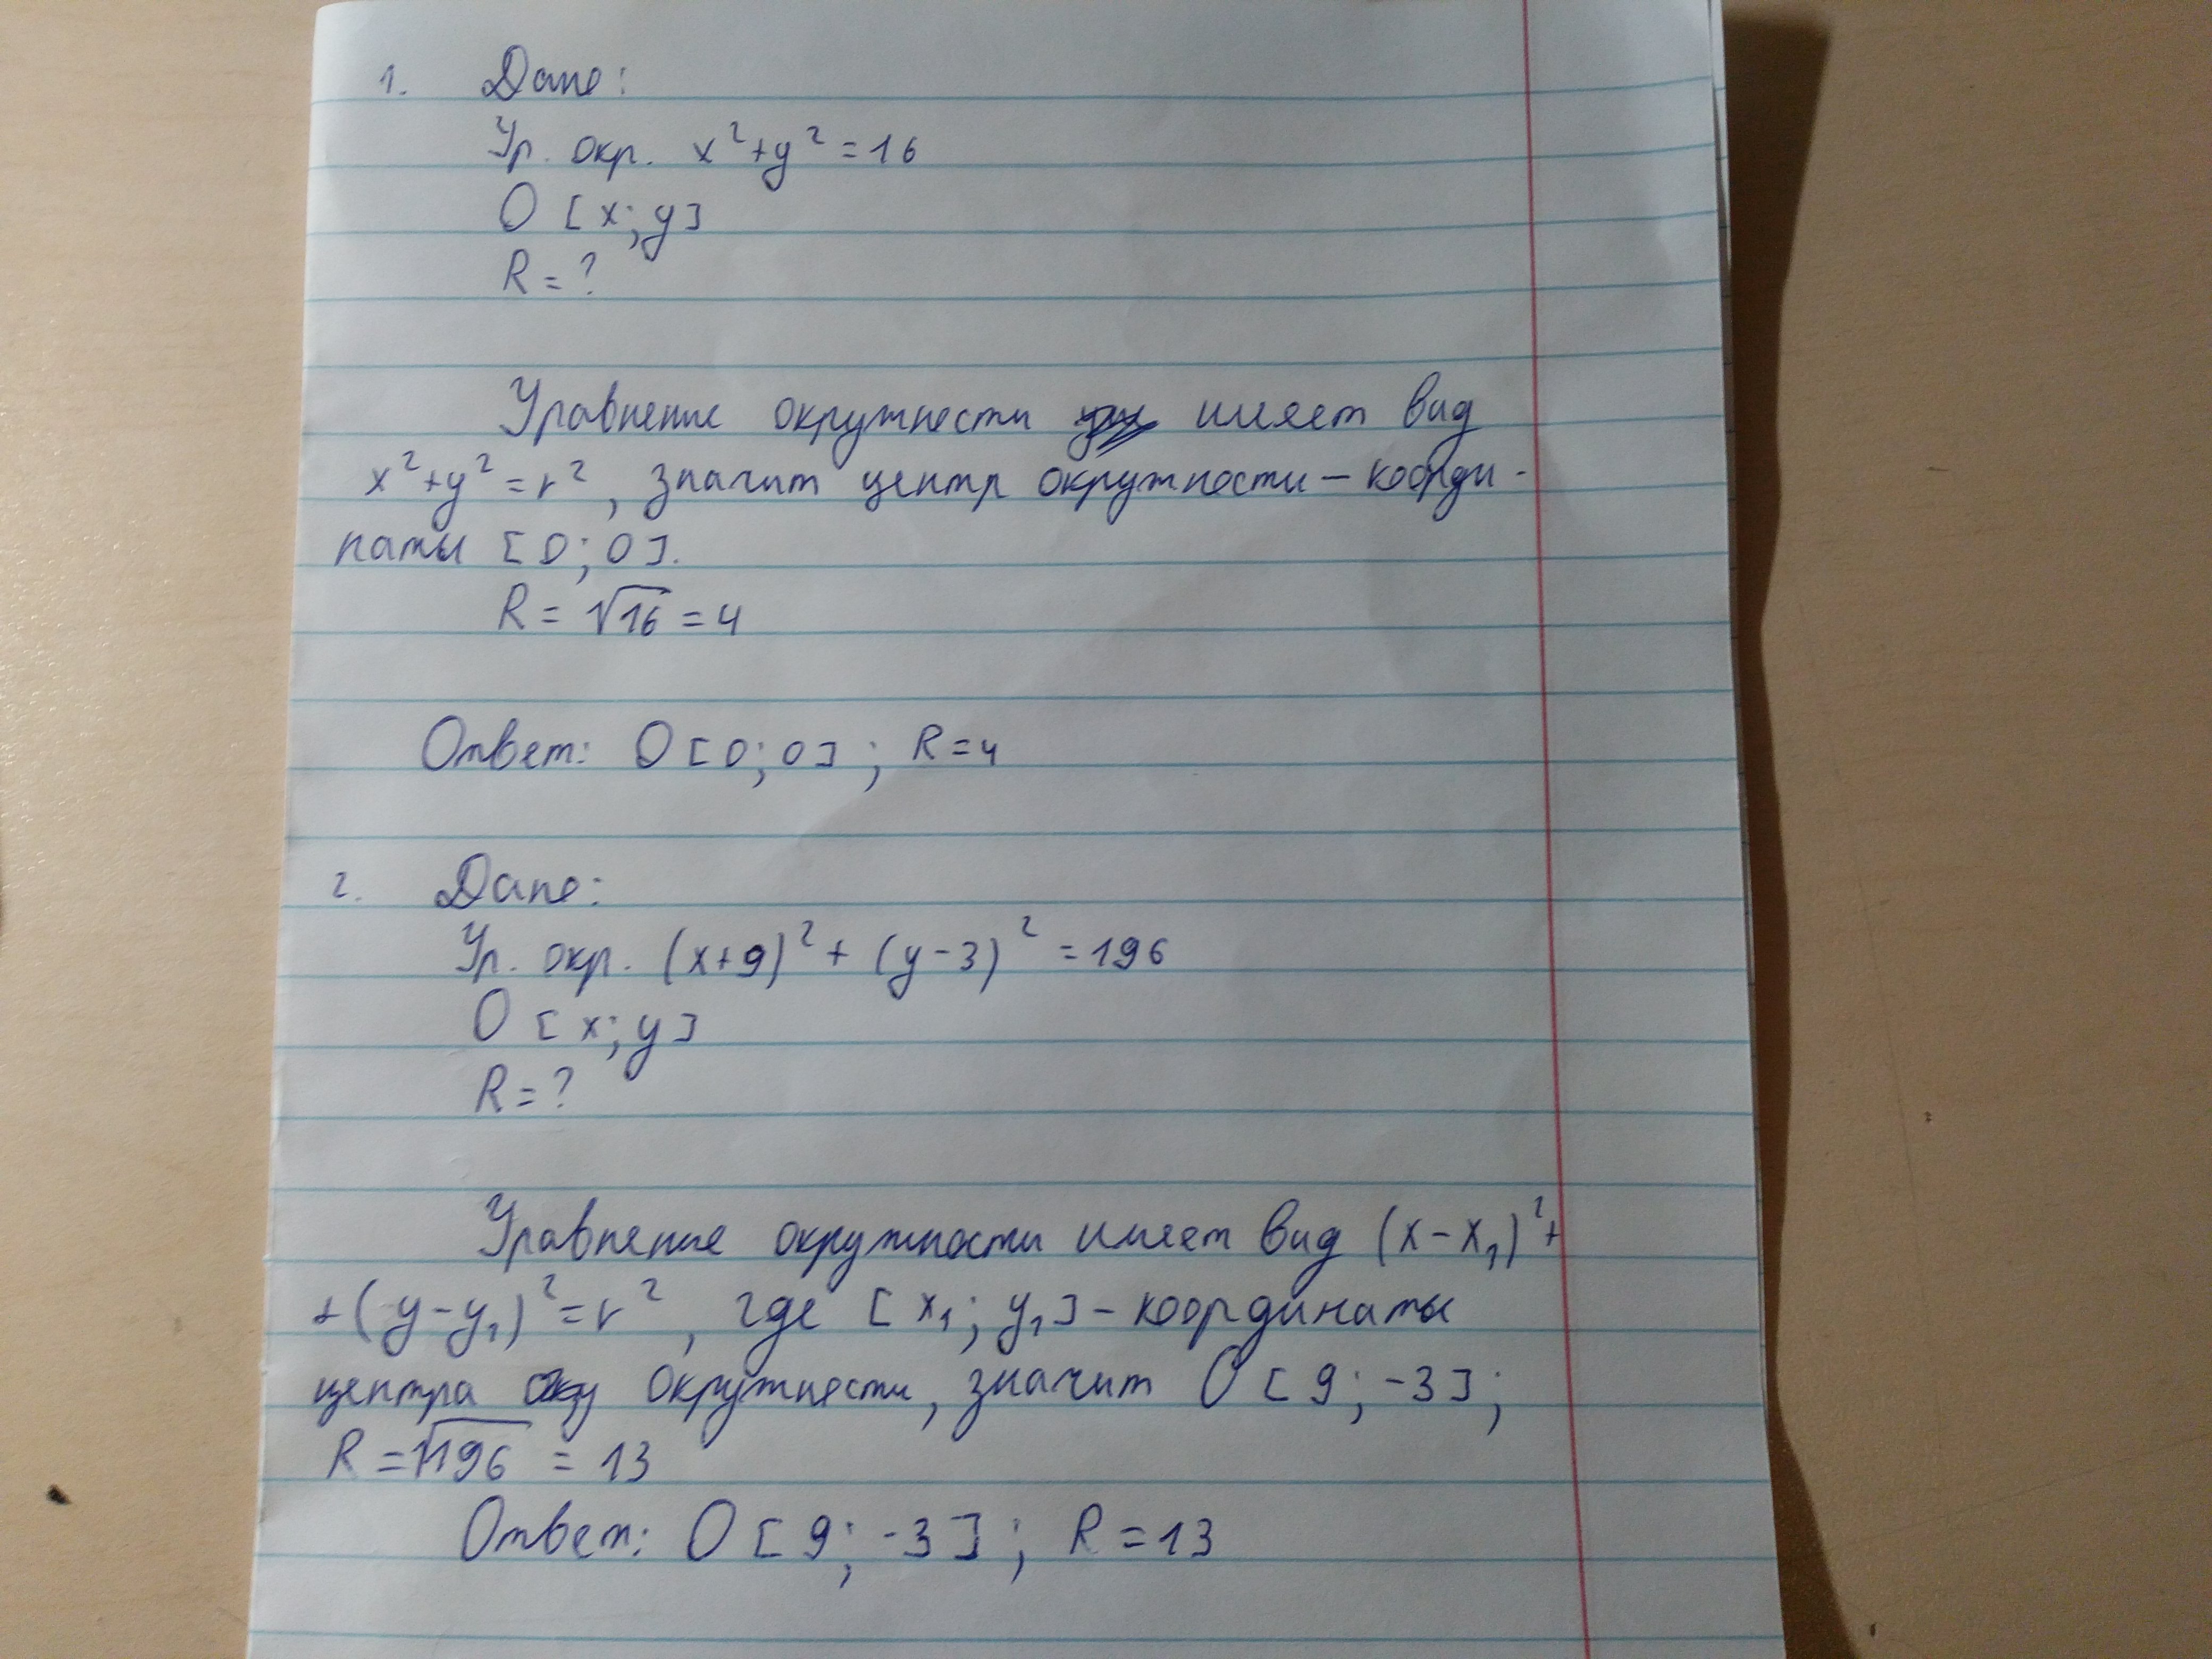 1. Дано:
Ур. окр. x²+y²=16
O [x;y]
R=?
Уравнение окружности имеет вид
x²+y²=r², значит центр окружности – коорди-
наты [0;0].
R=√16=4
Ответ: O[0;0]; R=4
2. Дано:
Ур. окр. (x+9)²+(y-3)²=196
O [x;y]
R=?
Уравнение окружности имеет вид (x-x₁)²+
+(y-y₁)²=r², где [x₁;y₁] – координаты
центра окружности, значит O[9;-3];
R=√196=13
Ответ: O[9;-3]; R=13